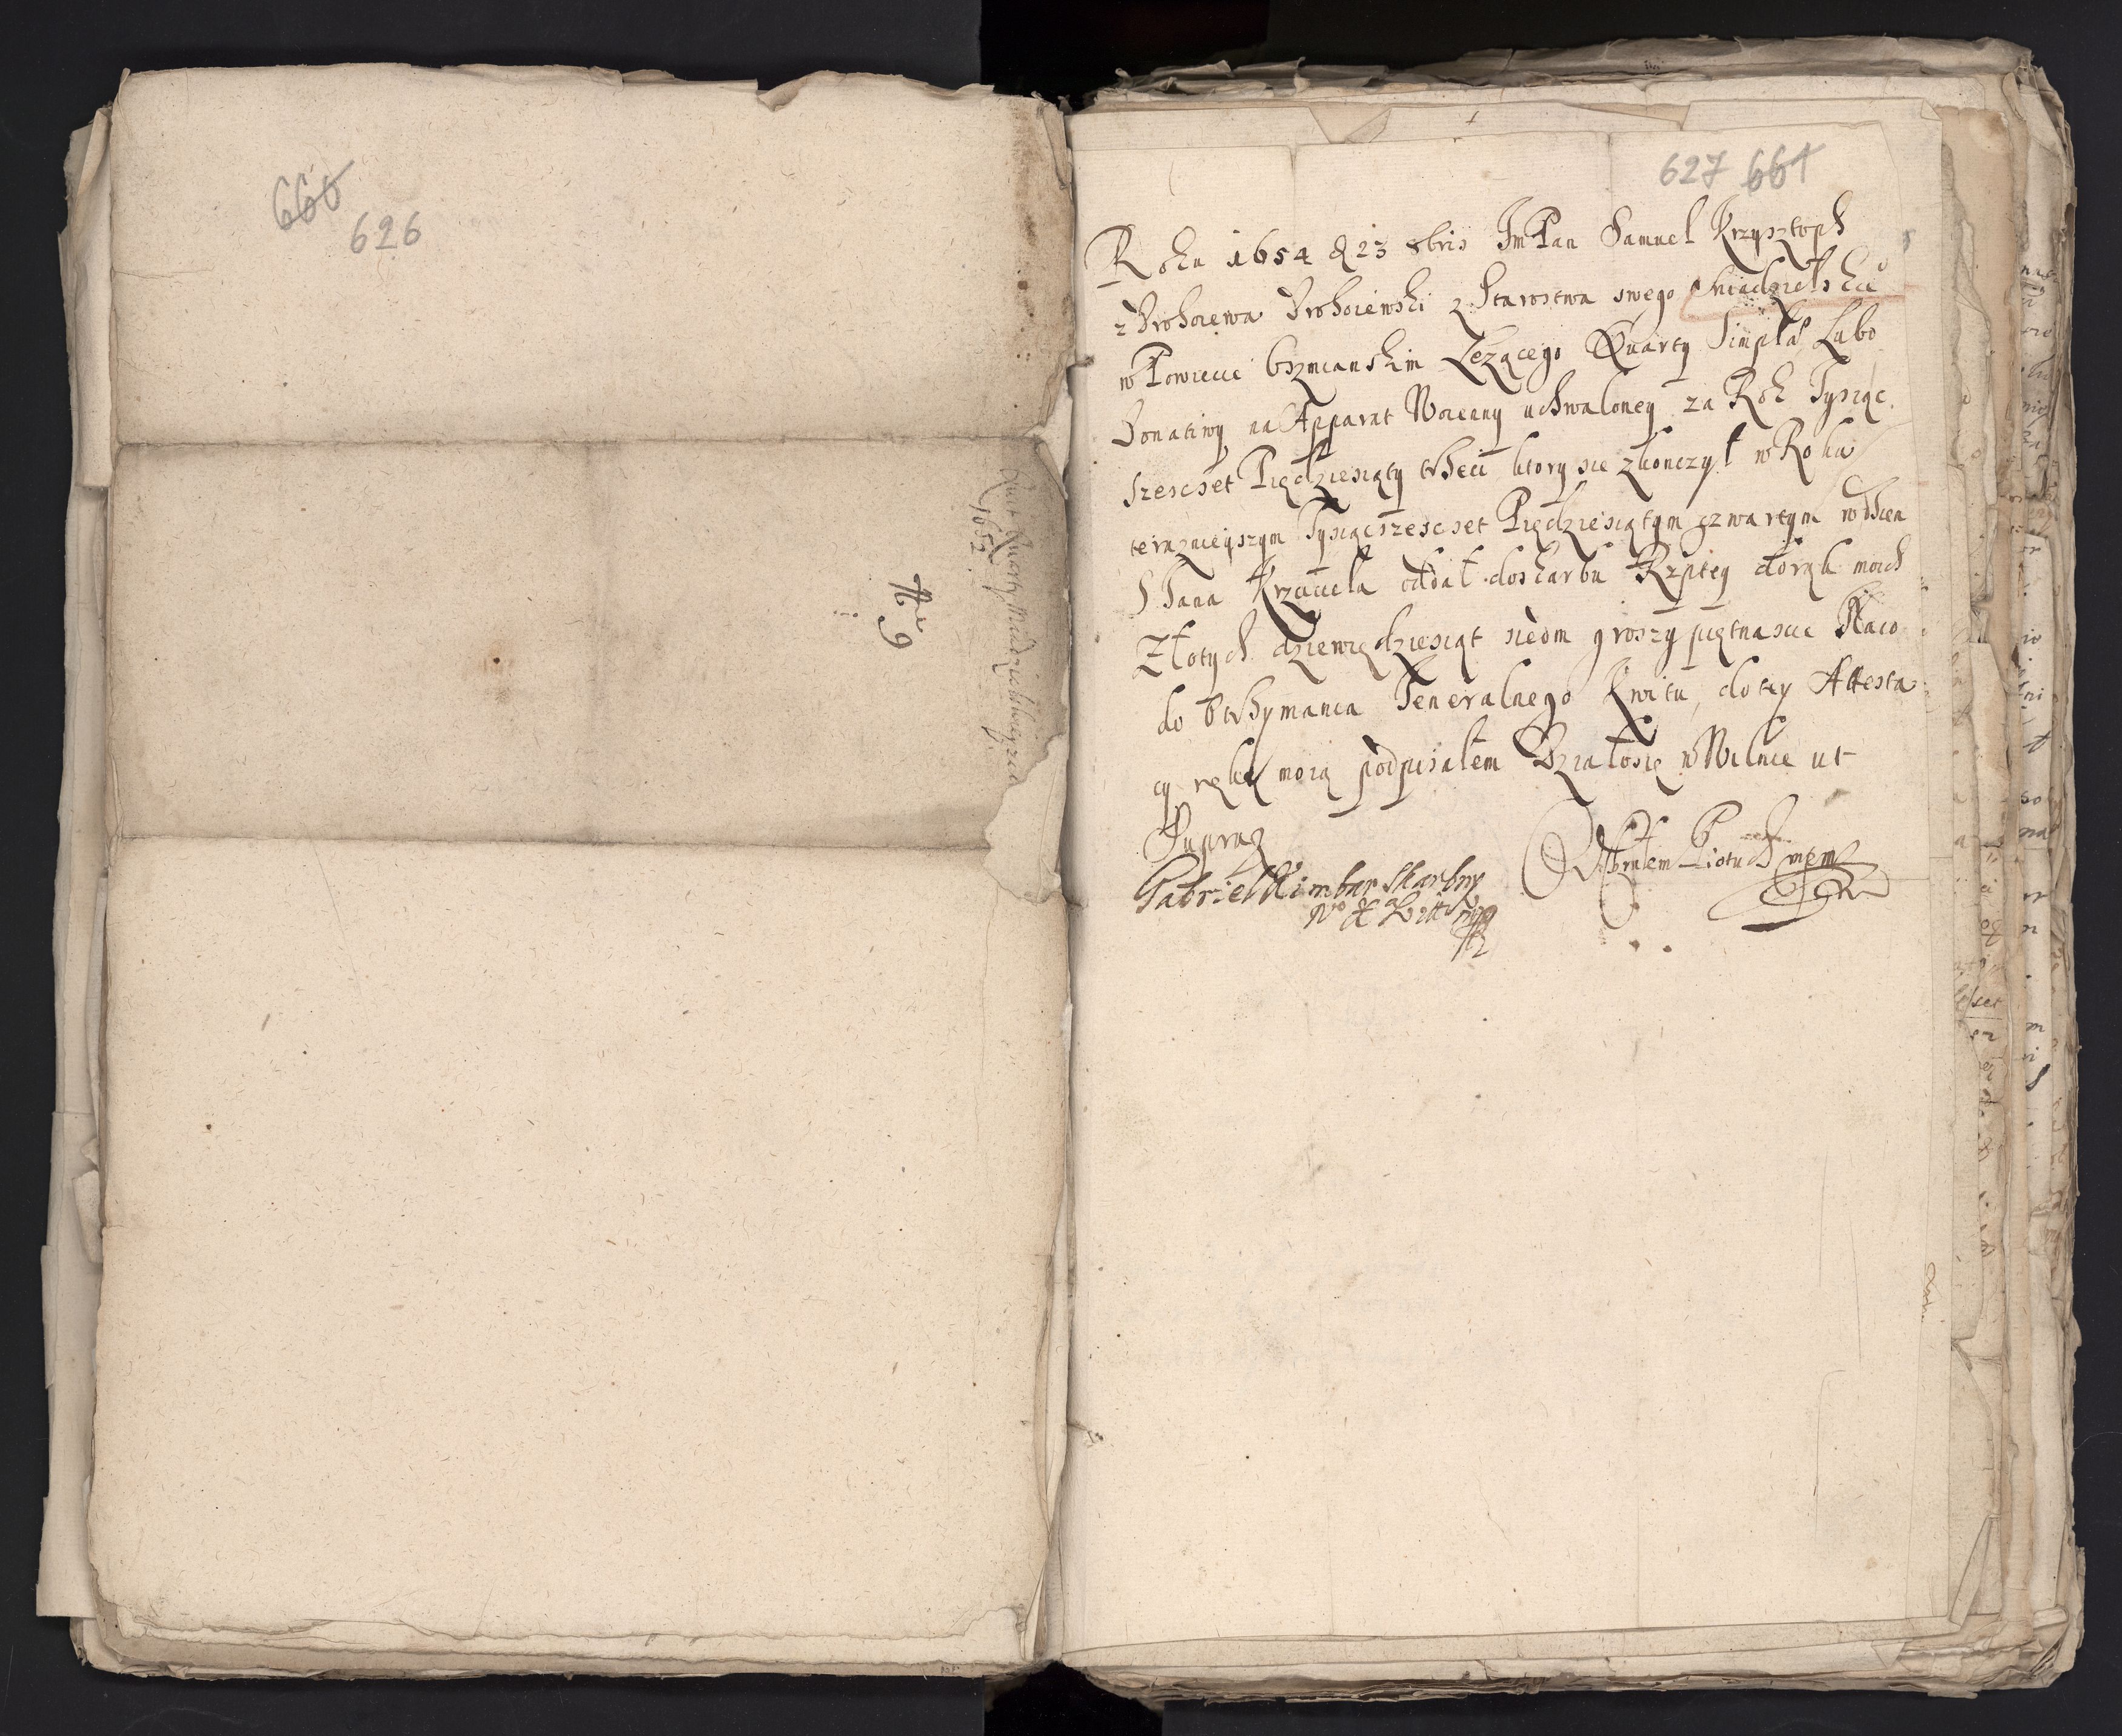 660
626
Quit Quarty Miadzielskiey zie
1652
№ 9
627 661
Roku 1654 d 23 8bris ImPan Samuel Krzysztoph
z Drohoiewa Drohoiewski z Starostwa swego Miadzielskie
w Powiecie Oszmianskim Leżącego Quarty Simpla Lubo
Donatiwy na Apparat Woienny uchwaloney za Rok Tysiąc
szescset Pięcdziesiąty trzeci ktory sie zkonczył w Roku
teraznieyszym Tysiącszescset Pięcdziesiątym czwartym w dzien
S Jana Krzciciela oddał do skarbu Rzptey do rąk moich
Złotych dziewięcdziesiąt siedm groszy piętnascie Naco
do otrzymania Generalnego Kwitu, do tey Attesta
cy ręką moią podpisałem Działosię w Wilnie ut
Supra
Gabriel Kimbar Skarbny
W X Litt mp